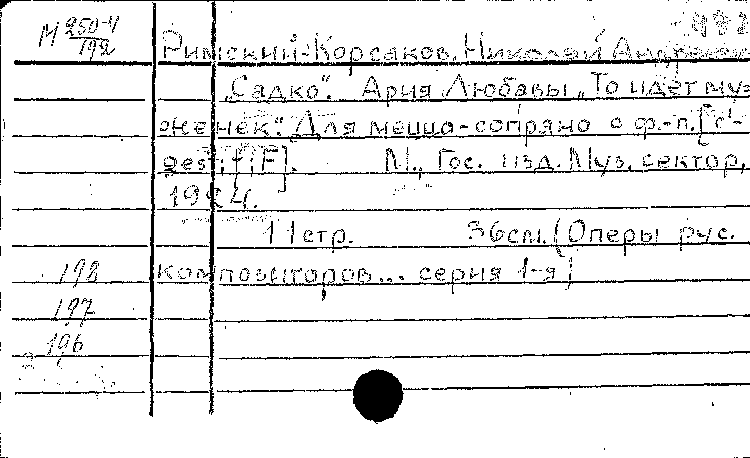 М 250-4
192
Римский-Корсаков, Николай
„Садко“. Ария Любавы „То идет муж
женек“. Для меццо-сопрано с ф.-п. [c¹-
ges²; f; F]. М., Гос. изд. Муз. сектор,
1924.
11 стр. 36 см. (Оперы рус.
композиторов... серия 1-я)
198
197
196